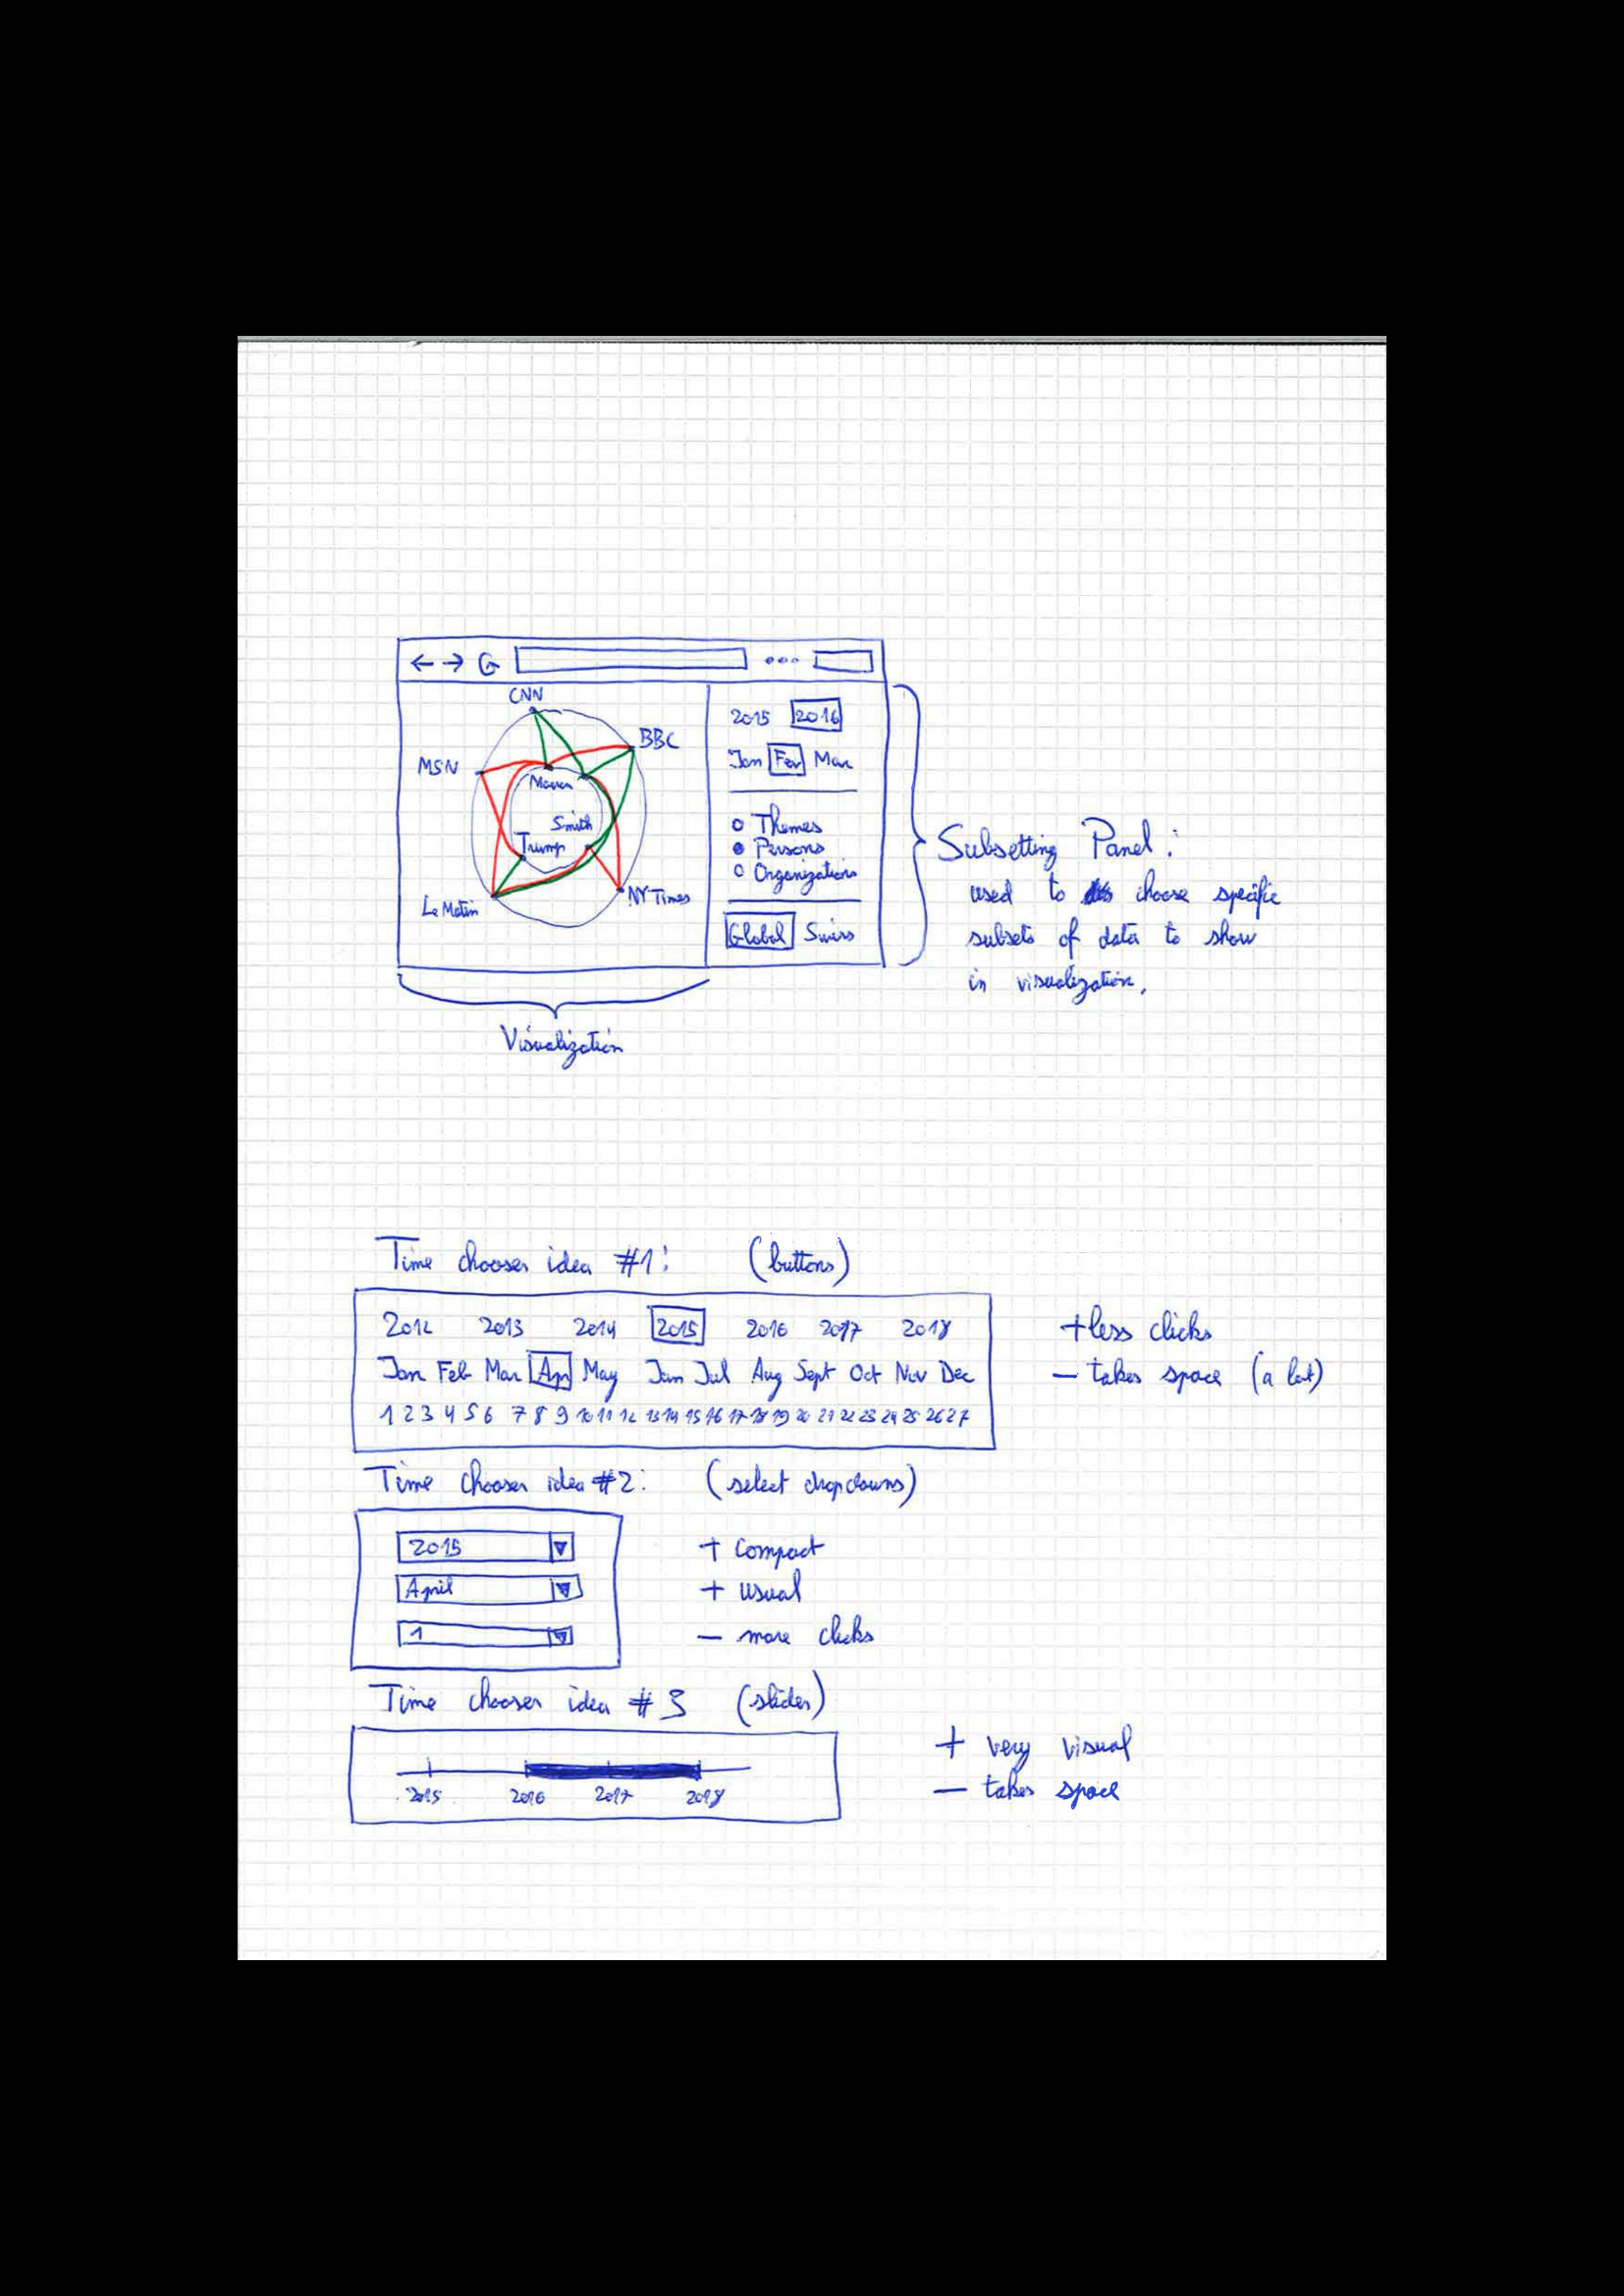 CNN
BBC
MSN
Smith
Trump
Le Matin
NY Times
2015 2016
Jan Fev Mar
Themes
Persons
Organizations
Global Swiss
Subsetting Panel:
used to choose specific
subsets of data to show
in visualization.
Visualization
Time chooser idea #1: (buttons)
2012 2013 2014 2015 2016 2017 2018
Jan Feb Mar Apr May Jun Jul Aug Sept Oct Nov Dec
1 2 3 4 5 6 7 8 9 10 11 12 13 14 15 16 17 18 19 20 21 22 23 24 25 26 27
+ less clicks
- takes space (a lot)
Time chooser idea #2: (select dropdowns)
2015
April
1
+ compact
+ usual
- more clicks
Time chooser idea #3 (slider)
2015 2016 2017 2018
+ very visual
- takes space